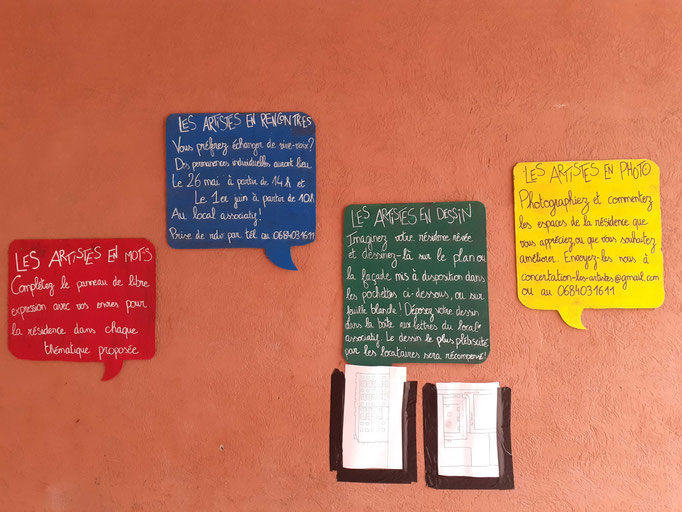 LES ARTISTES EN MOTS
Complétez le panneau de libre
expression avec vos envies pour
la résidence dans chaque
thématique proposée
LES ARTISTES EN RENCONTRES
Vous préférez échanger de vive-voix?
Des permanences individuelles auront lieu
Le 26 mai à partir de 14h et
Le 1er juin à partir de 10h
Au local associatif!
Prise de rdv par tél. au 0684031611
LES ARTISTES EN DESSIN
Imaginez votre résidence rêvée
et dessinez-là sur le plan ou
la façade mis à disposition dans
les pochettes ci-dessous, ou sur
feuille blanche! Déposez votre dessin
dans la boîte aux lettres du local
associatif. Le dessin le plus plébiscité
par les locataires sera récompensé!
LES ARTISTES EN PHOTO
Photographiez et commentez
les espaces de la résidence que
vous appréciez ou que vous souhaitez
améliorer. Envoyez-les nous à
concertation-les-artistes@gmail.com
ou au 0684031611